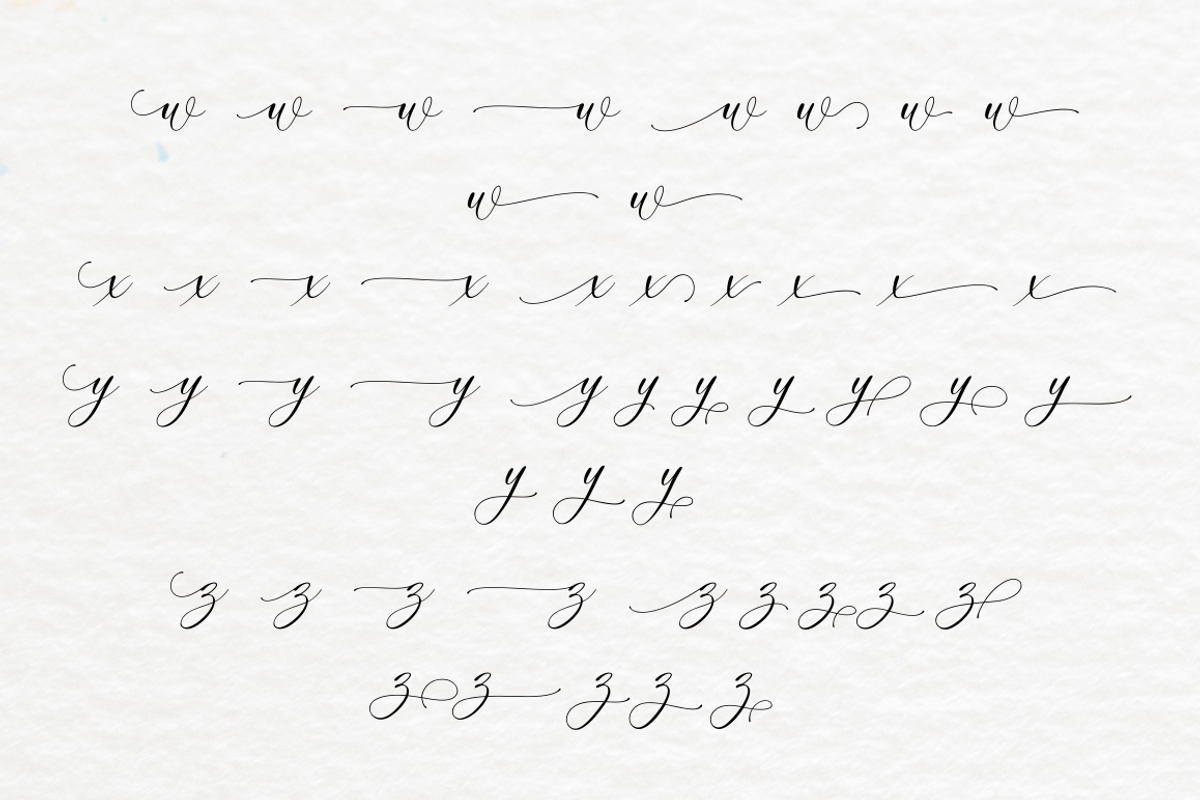 w w w w w w w w
w w
x x x x x x x x x x
y y y y y y y y y y y
y y y
z z z z z z z z z
z z z z z